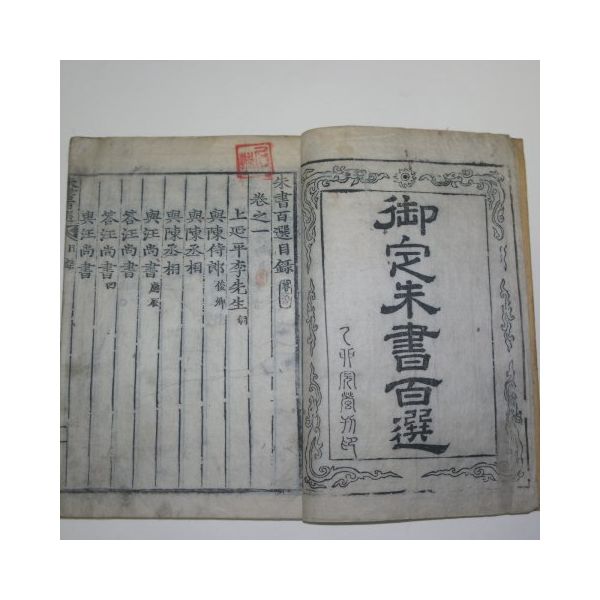 御定朱書百選
乙卯完營刊印
朱書百選目錄
卷之一
上延平李先生 侗
與陳侍郎 俊卿
與陳丞相
與陳丞相
與汪尚書 應辰
答汪尚書
答汪尚書 四
與汪尚書